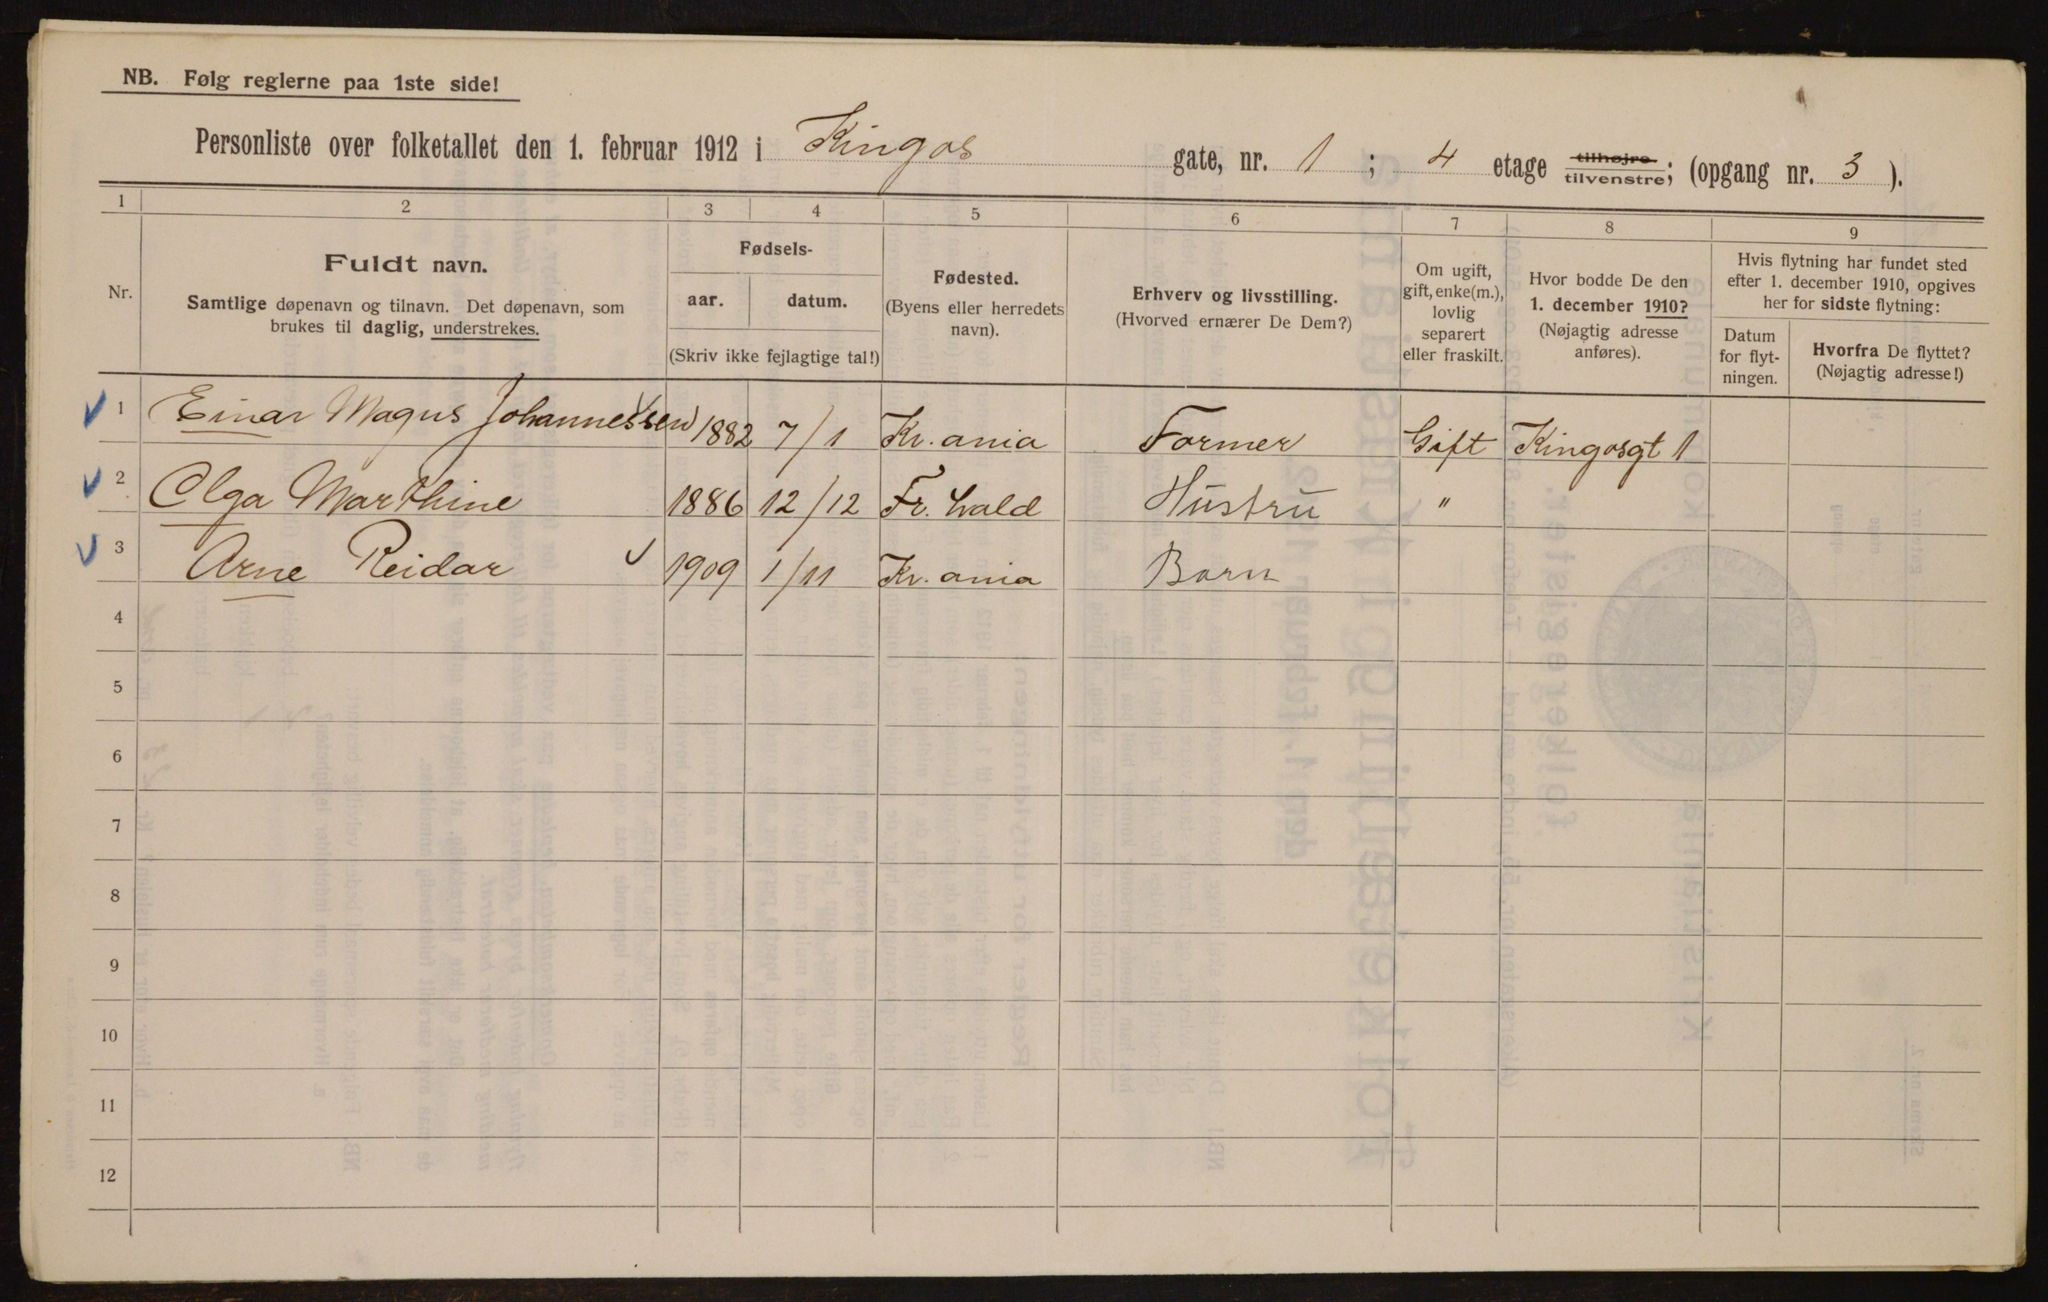 NB. Følg reglerne paa 1ste side!
Personliste over folketallet den 1. februar 1912 i Kingos gate, nr. 1 ; 4 etage tilhøjre tilvenstre; (opgang nr. 3 ).
1 2 3 4 5 6 7 8 9
Nr.
Fuldt navn.
Samtlige døpenavn og tilnavn. Det døpenavn, som
brukes til daglig, understrekes.
Fødsels-
aar. datum.
(Skriv ikke fejlagtige tal!)
Fødested.
(Byens eller herredets
navn).
Erhverv og livsstilling.
(Hvorved ernærer De Dem?)
Om ugift,
gift, enke(m.),
lovlig
separert
eller fraskilt.
Hvor bodde De den
1. december 1910?
(Nøjagtig adresse
anføres).
Hvis flytning har fundet sted
efter 1. december 1910, opgives
her for sidste flytning:
Datum
for flyt-
ningen.
Hvorfra De flyttet?
(Nøjagtig adresse!)
1 Einar Magus Johannessen 1882 7/1 Kr.ania Former Gift Kingosgt 1
2 Olga Marthine 1886 12/12 Fr. hald Hustru "
3 Arne Reidar 1909 1/11 Kr. ania Barn
4
5
6
7
8
9
10
11
12